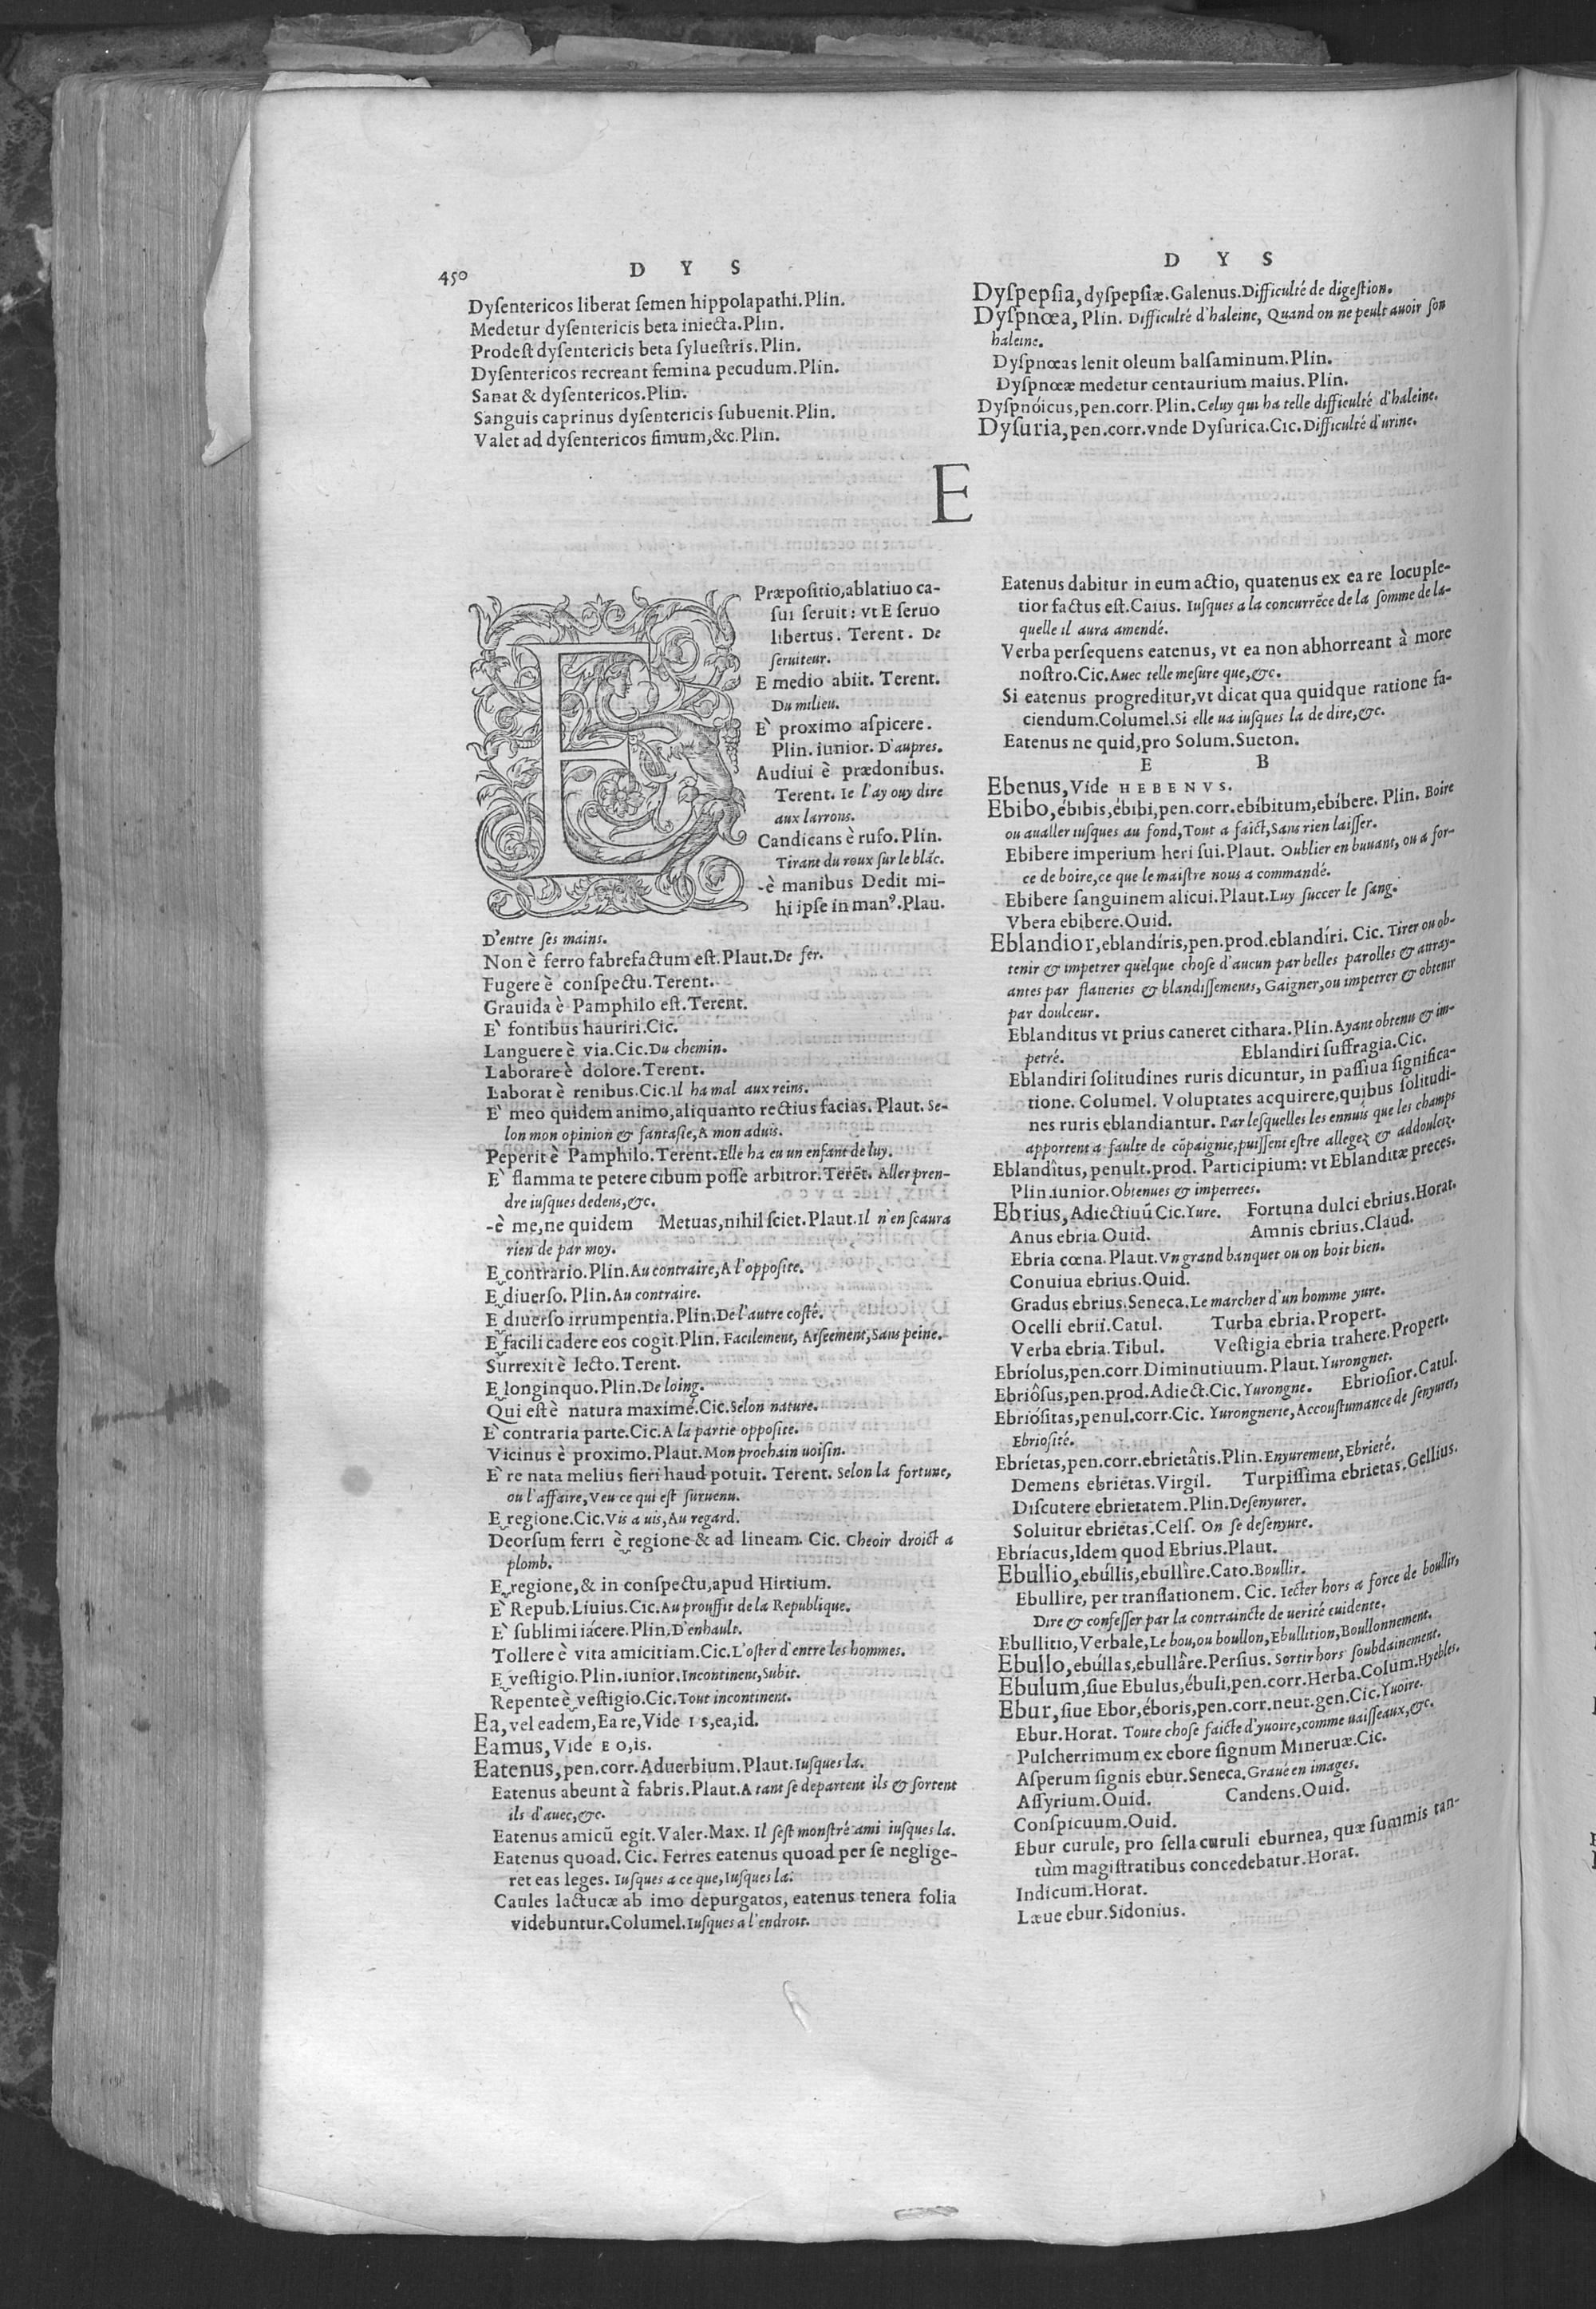 450
D Y S
D Y S
Dyſentericos liberat ſemen hippolapathi.Plin.
Medetur dyſentericis beta iniecta.Plin.
Prodeſt dyſentericis beta ſylueſtris.Plin.
Dyſentericos recreant femina pecudum.Plin.
Sanat & dyſentericos.Plin.
Sanguis caprinus dyſentericis ſubuenit.Plin.
Valet ad dyſentericos fimum,&c.Plin.
Dyſpepſia, dyſpepſiæ.Galenus.Difficulté de digeſtion.
Dyſpnœa, Plin. Difficulté d'haleine, Quand on ne peult auoir ſon
haleine.
Dyſpnœas lenit oleum balſaminum.Plin.
Dyſpnœæ medetur centaurium maius.Plin.
Dyſpnóicus,pen.corr.Plin.Celuy qui ha telle difficulté d'haleine.
Dyſuria,pen.corr.vnde Dyſurica.Cic.Difficulté d'urine.
E
E
Præpoſitio,ablatiuo ca-
ſui ſeruit: vt E ſeruo
libertus. Terent. De
ſeruiteur.
E medio abiit. Terent.
Du milieu.
E' proximo aſpicere.
Plin. iunior. D'aupres.
Audiui è prædonibus.
Terent. Ie l'ay ouy dire
aux larrons.
Candicans è rufo. Plin.
Tirant du roux ſur le blāc.
-è manibus Dedit mi-
hi ipſe in manꝰ.Plau.
D'entre ſes mains.
Non è ferro fabrefactum eſt.Plaut.De fer.
Fugere è conſpectu.Terent.
Grauida è Pamphilo eſt.Terent.
E' fontibus hauriri.Cic.
Languere è via.Cic.Du chemin.
Laborare è dolore.Terent.
Laborat è renibus.Cic.Il ha mal aux reins.
E' meo quidem animo,aliquanto rectius facias. Plaut. Se-
lon mon opinion & fantaſie,A mon aduis.
Peperit è Pamphilo.Terent.Elle ha eu un enfant de luy.
E' flamma te petere cibum poſſe arbitror.Terēt. Aller pren-
dre iuſques dedens,&c.
-è me,ne quidem Metuas,nihil ſciet.Plaut.Il n'en ſcaura
rien de par moy.
E contrario.Plin.Au contraire,A l'oppoſite.
E diuerſo. Plin.Au contraire.
E diuerſo irrumpentia.Plin.De l'autre coſté.
E facili cadere eos cogit.Plin. Facilement, Aiſeement,Sans peine.
Surrexit è lecto.Terent.
E longinquo.Plin.De loing.
Qui eſt è natura maximé.Cic.Selon nature.
E' contraria parte.Cic.A la partie oppoſite.
Vicinus è proximo.Plaut.Mon prochain uoiſin.
E' re nata melius fieri haud potuit. Terent. Selon la fortune,
ou l'affaire,Veu ce qui eſt ſuruenu.
E regione.Cic.Vis a uis,Au regard.
Deorſum ferri è regione & ad lineam. Cic. Cheoir droict a
plomb.
E regione,& in conſpectu,apud Hirtium.
E' Repub.Liuius.Cic.Au prouffit de la Republique.
E' ſublimi iácere.Plin.D'enhault.
Tollere è vita amicitiam.Cic.L'oſter d'entre les hommes.
E veſtigio.Plin.iunior.Incontinent,Subit.
Repente è veſtigio.Cic.Tout incontinent.
Ea, vel eadem,Ea re,Vide I S,ea,id.
Eamus, Vide E O,is.
Eatenus,pen.corr.Aduerbium.Plaut.Iuſques la.
Eatenus abeunt à fabris.Plaut.A tant ſe departent ils & ſortent
ils d'auec,&c.
Eatenus amicū egit.Valer.Max. Il ſeſt monſtré ami iuſques la.
Eatenus quoad. Cic. Ferres eatenus quoad per ſe neglige-
ret eas leges. Iuſques a ce que,Iuſques la.
Caules lactucæ ab imo depurgatos, eatenus tenera folia
videbuntur.Columel.Iuſques a l'endroit.
Eatenus dabitur in eum actio, quatenus ex ea re locuple-
tior factus eſt.Caius. Iuſques a la concurrēce de la ſomme de la-
quelle il aura amendé.
Verba perſequens eatenus, vt ea non abhorreant à more
noſtro.Cic.Auec telle meſure que,&c.
Si eatenus progreditur,vt dicat qua quidque ratione fa-
ciendum.Columel.Si elle ua iuſques la de dire,&c.
Eatenus ne quid,pro Solum.Sueton.
E B
Ebenus, Vide HEBENVS.
Ebibo, ébibis, ébibi,pen.corr.ebíbitum,ebíbere. Plin. Boire
ou aualler iuſques au fond,Tout a faict,Sans rien laiſſer.
Ebibere imperium heri ſui.Plaut. Oublier en buuant, ou a for-
ce de boire,ce que le maiſtre nous a commandé.
Ebibere ſanguinem alicui.Plaut.Luy ſuccer le ſang.
Vbera ebibere.Ouid.
Eblandior,eblandíris,pen.prod.eblandíri. Cic. Tirer ou ob-
tenir & impetrer quelque choſe d'aucun par belles parolles & attray-
antes par flatteries & blandiſſements, Gaigner,ou impetrer & obtenir
par doulceur.
Eblanditus vt prius caneret cithara.Plin.Ayant obtenu & im-
petré. Eblandiri ſuffragia.Cic.
Eblandiri ſolitudines ruris dicuntur, in paſſiua ſignifica-
tione. Columel. Voluptates acquirere,quibus ſolitudi-
nes ruris eblandiantur. Par leſquelles les ennuis que les champs
apportent a faulte de cōpaignie,puiſſent eſtre allegez & addoulcis.
Eblandîtus, penult.prod. Participium: vt Eblanditæ preces.
Plin.iunior.Obtenues & impetrees.
Ebrius, Adiectiuū Cic.Yure. Fortuna dulci ebrius.Horat.
Anus ebria Ouid. Amnis ebrius.Claud.
Ebria cœna.Plaut.Vn grand banquet ou on boit bien.
Conuiua ebrius.Ouid.
Gradus ebrius.Seneca.Le marcher d'un homme yure.
Ocelli ebrii.Catul. Turba ebria.Propert.
Verba ebria.Tibul. Veſtigia ebria trahere.Propert.
Ebríolus,pen.corr.Diminutiuum.Plaut.Yurongnet.
Ebriôſus,pen.prod.Adiect.Cic.Yurongne. Ebrioſior.Catul.
Ebrióſitas,penul.corr.Cic. Yurongnerie,Accouſtumance de ſenyurer,
Ebrioſité.
Ebríetas,pen.corr.ebrietâtis.Plin.Enyurement,Ebrieté.
Demens ebrietas.Virgil. Turpiſſima ebrietas.Gellius.
Diſcutere ebrietatem.Plin.Deſenyurer.
Soluitur ebrietas.Celſ. On ſe deſenyure.
Ebríacus,Idem quod Ebrius.Plaut.
Ebullio,ebúllis,ebullîre.Cato.Boullir.
Ebullire, per tranſlationem. Cic. Iecter hors a force de boullir,
Dire & confeſſer par la contraincte de uerité euidente.
Ebullitio,Verbale,Le bou,ou boullon,Ebullition,Boullonnement.
Ebullo,ebúllas,ebullâre.Perſius. Sortir hors ſoubdainement.
Ebulum,ſiue Ebulus,ébuli,pen.corr.Herba.Colum.Hyebles.
Ebur, ſiue Ebor,éboris,pen.corr.neut.gen.Cic.Yuoire.
Ebur.Horat. Toute choſe faicte d'yuoire,comme uaiſſeaux,&c.
Pulcherrimum ex ebore ſignum Mineruæ.Cic.
Aſperum ſignis ebur.Seneca.Graué en images.
Aſſyrium.Ouid. Candens.Ouid.
Conſpicuum.Ouid.
Ebur curule, pro ſella curuli eburnea, quæ ſummis tan-
tùm magiſtratibus concedebatur.Horat.
Indicum.Horat.
Læue ebur.Sidonius.